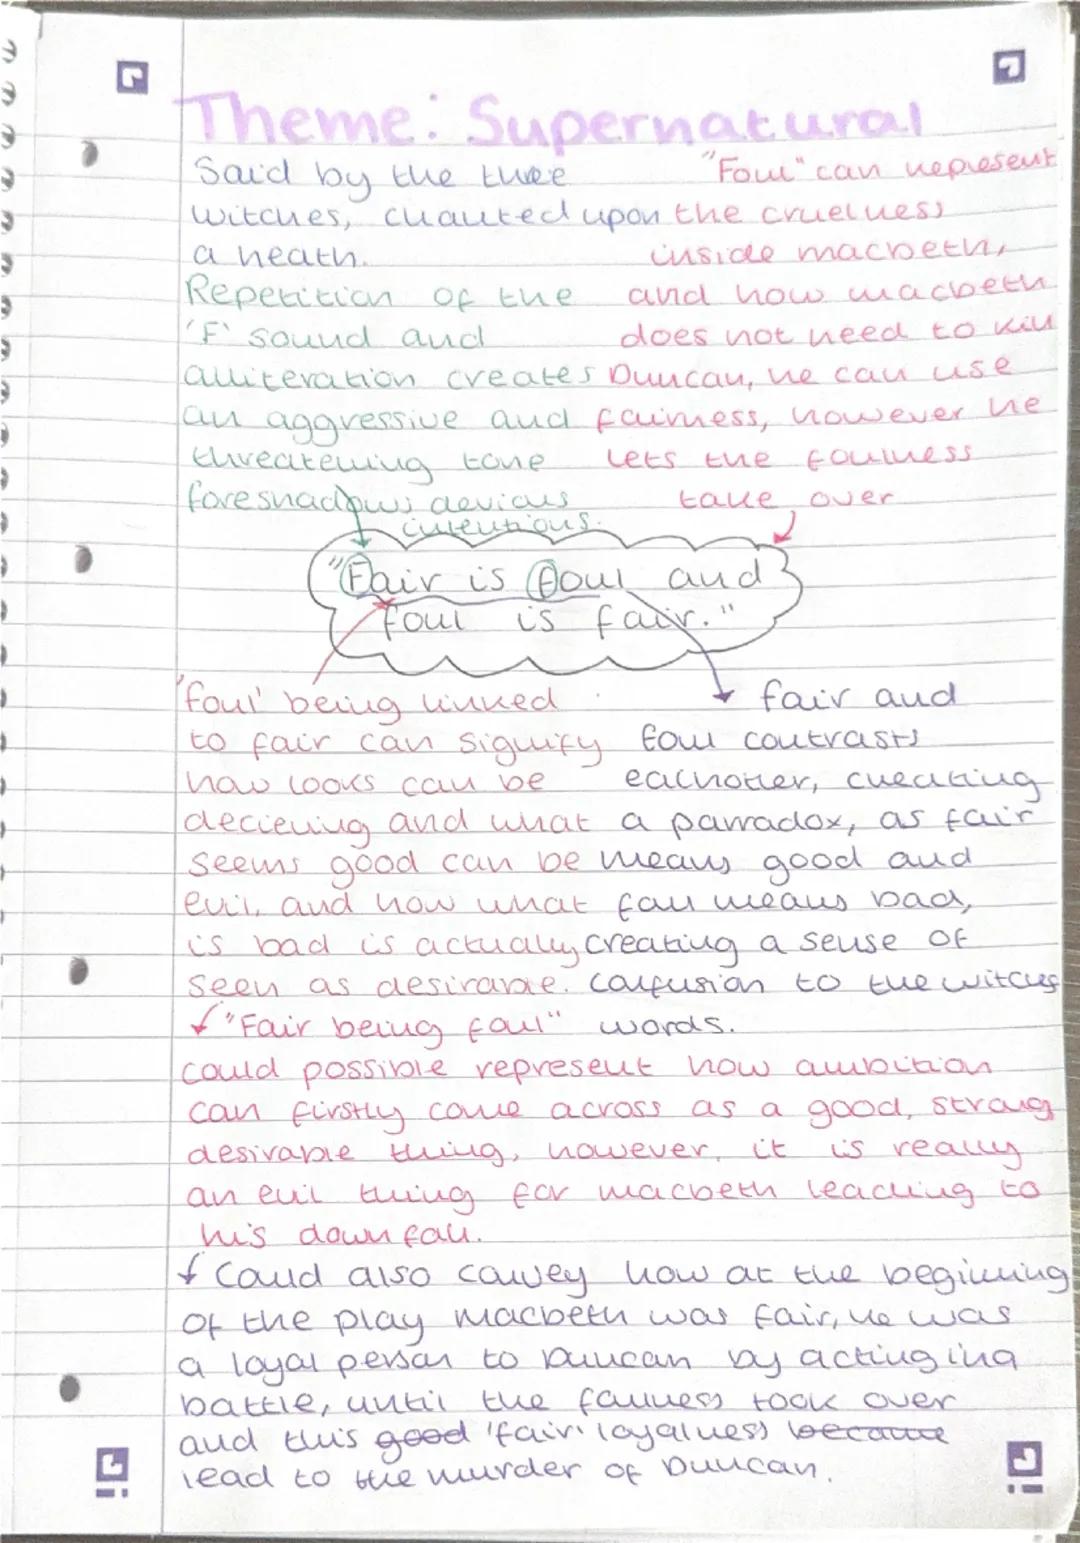 Theme: Supernatural
Said by the three
witches, chanted upon
a heath.
Repetition of the
'F' sound and
alliteration creates
an aggressive and
threatening tone
foreshadows devious
intentions.
"Foul" can represent
the cruelness
inside macbeth,
and how macbeth
does not need to kill
Duncan, he can use
fairness, however he
lets the foulness
take over
"Fair is foul and
foul is fair."
'foul' being linked
to fair can signify
how looks can be
decieving and what
seems good can be
evil, and how what
is bad is actually
seen as desirable.
fair and
foul contrasts
eachother, creating
a parradox, as fair
means good and
foul means bad,
creating a sense of
confusion to the witches
words.
"Fair being foul"
could possible represent how ambition
can firstly come across as a good, strong
desirable thing, however, it is really
an evil thing for macbeth leading to
his downfall.
Could also convey how at the beginning
of the play macbeth was fair, he was
a loyal person to Duncan by acting in a
battle, until the foulness took over
and this good 'fair' loyalness became
lead to the murder of Duncan.